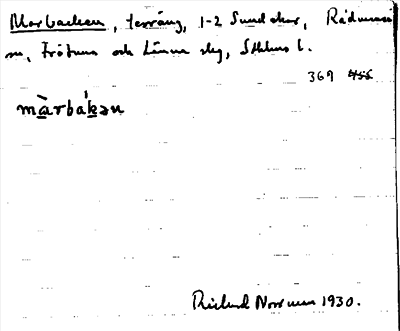 Marbacken, terräng, 1-2 Sundsker, Rådmansö
sn, Frötuna och Länna skg, Sthlms l.
369 456
màrbákən
Rickard Norrman 1930.